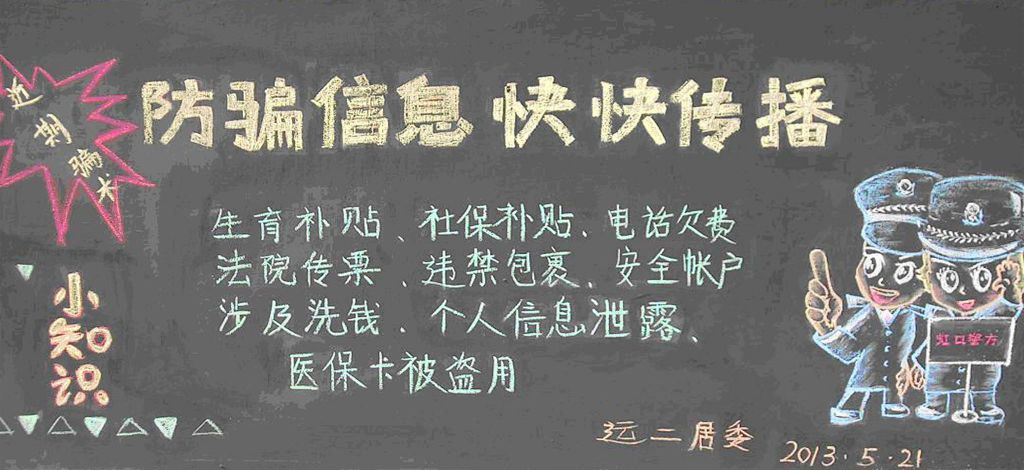 近期骗术
防骗信息 快快传播
生育补贴、社保补贴、电话欠费
法院传票、违禁包裹、安全帐户
涉及洗钱、个人信息泄露、
医保卡被盗用
小知识
虹口警方
运二居委
2013.5.21